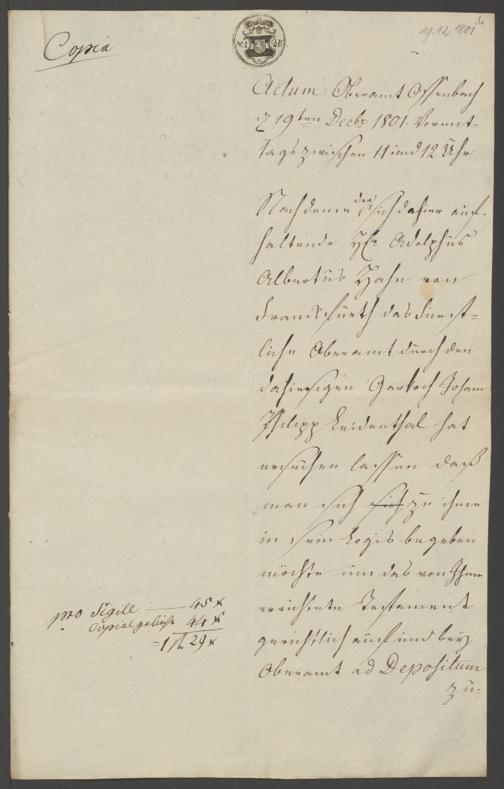 19.12.1801
Copia
Nr. 1 CR
Actum Oberamt Offenbach
d 19ten Decbr 1801. Vormit-
tags zwischen 11 und 12 Uhr
Nachdeme der sich dahier auf-
haltende Hr Adolphus
Albertus Hahn von
Frankfurth das Fürst-
liche Oberamt durch den
dahiesigen Garkoch Johann
Philipp Leidenthal hat
ersuchen lassen daß
man sich sich zu ihme
in sein Logis begeben
möchte um das von Ihme
errichtete Testament
gerichtlich auf und bey
Oberamt ad Depositum
zu-
pro Sigill 45 x
Copialgebühr 44 x
= 1 fl 29 x